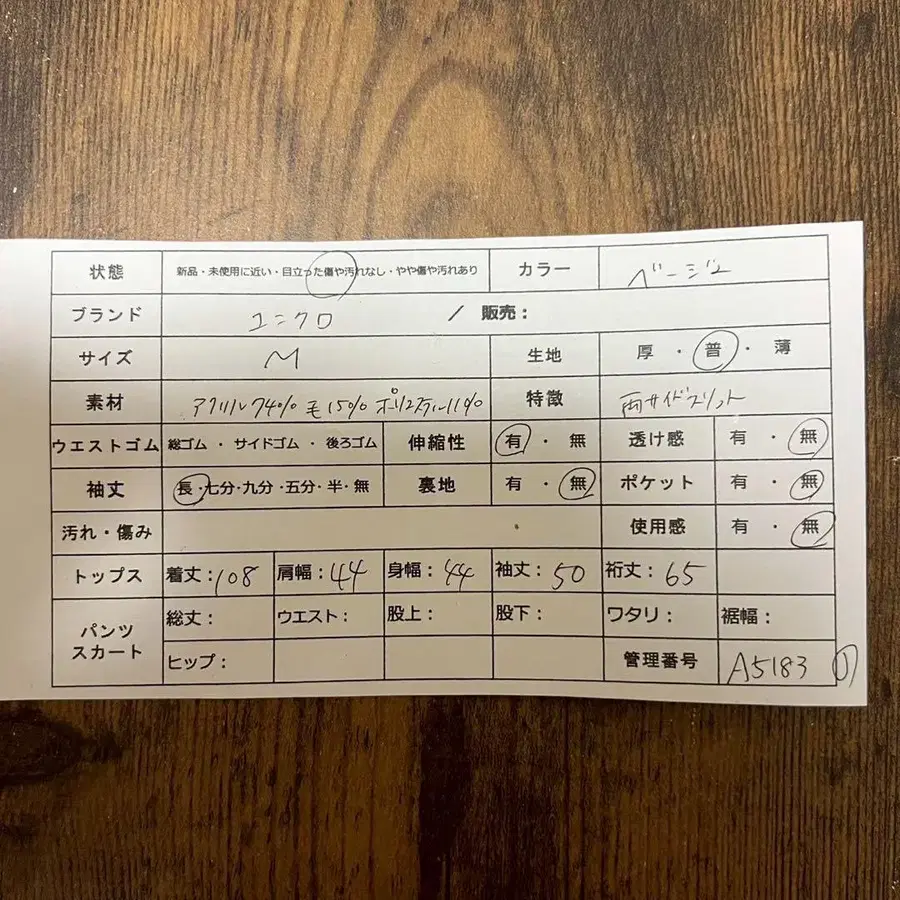 状態 新品・未使用に近い・目立った傷や汚れなし・やや傷や汚れあり カラー ベージュ
ブランド ユニクロ / 販売：
サイズ M 生地 厚・普・薄
素材 アクリル74% 毛15% ポリエステル11% 特徴 両サイドスリット
ウエストゴム 総ゴム・サイドゴム・後ろゴム 伸縮性 有・無 透け感 有・無
袖丈 長・七分・九分・五分・半・無 裏地 有・無 ポケット 有・無
汚れ・傷み 使用感 有・無
トップス 着丈：108 肩幅：44 身幅：44 袖丈：50 裄丈：65
パンツ スカート 総丈： ウエスト： 股上： 股下： ワタリ： 裾幅：
ヒップ： 管理番号 A5183 ①